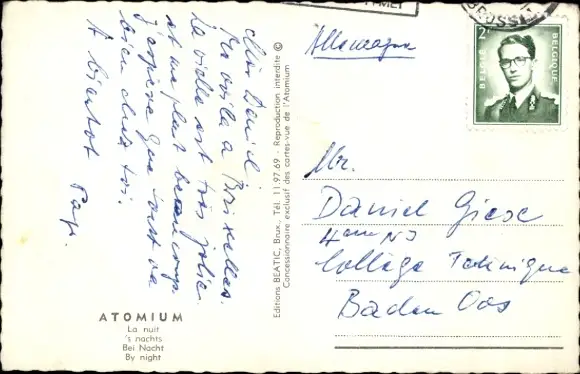 Cher Daniel
Me voilà a Bruxelles
La ville est très jolie
et me plait beaucoup.
J'espère que tout va
bien chez toi.
A bientot
Papi
ATOMIUM
La nuit
's nachts
Bei Nacht
By night
Editions BEATIC, Brux., Tél. 11 97 69 - Reproduction interdite ©
Concessionnaire exclusif des cartes-vue de l'Atomium
Allemagne
2F
BELGIE BELGIQUE
Mr.
Daniel Giese
4eme
Collège Technique
Baden Oos